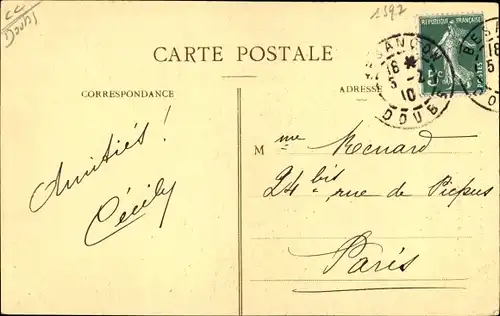 CC
(Doubs)
1597
CARTE POSTALE
CORRESPONDANCE
ADRESSE
RÉPUBLIQUE FRANÇAISE
5c
POSTES
BESANÇON
16 *
5 - 2
10
DOUBS
BESA
18
5
Amitiés !
Cécily
Mme Renard
24 bis rue de Picpus
Paris